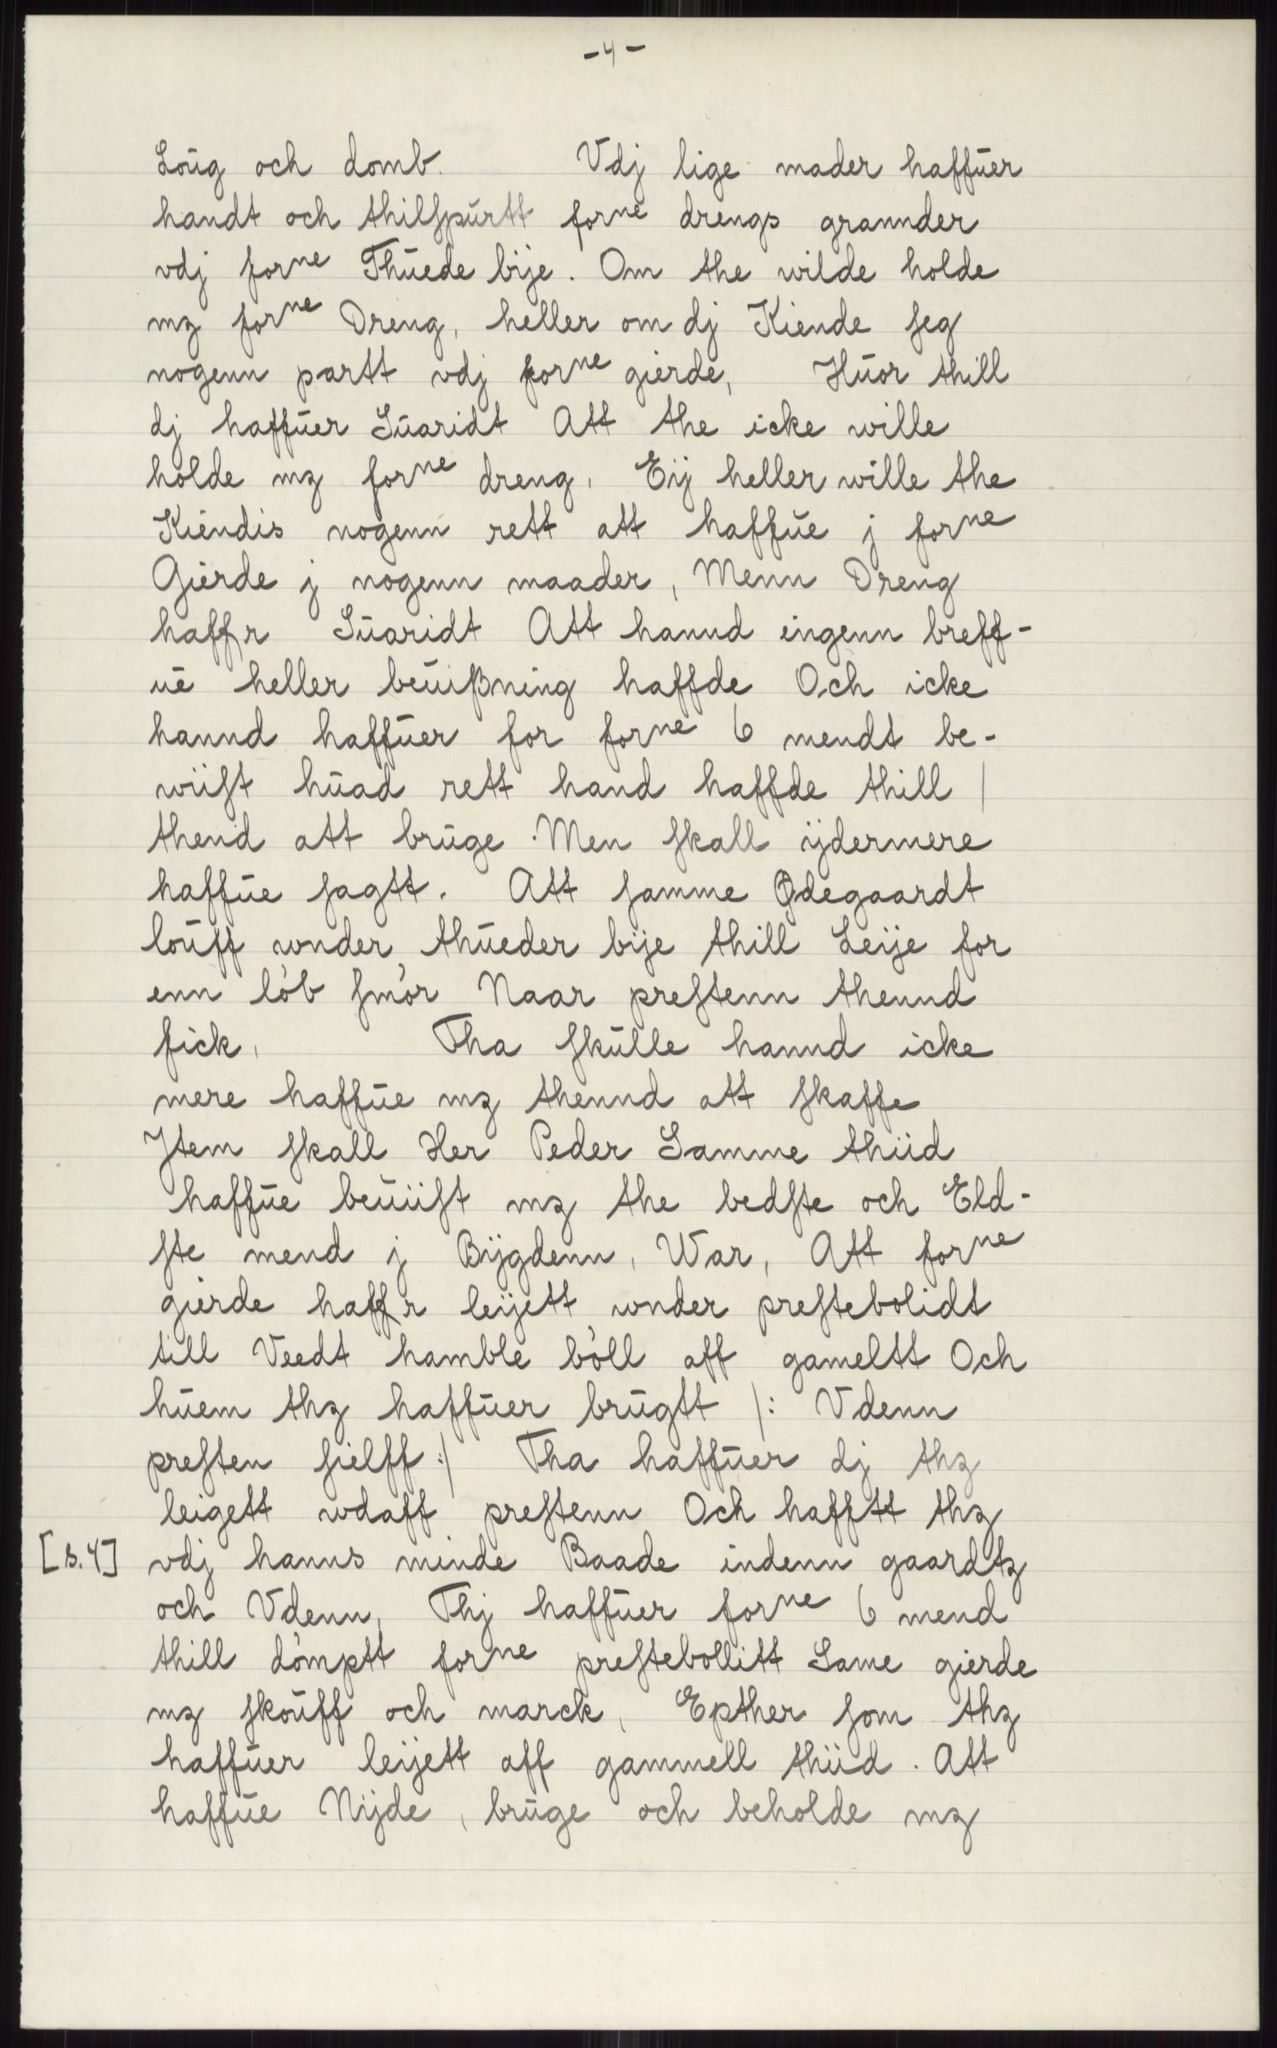 -4-
Loug och domb. Vdj lige mader haffuer
handt och thilspurtt forne drengs grannder
vdj forne Thuede bije. Om the wilde holde
mz forne Dreng, heller om dj Kiende seg
nogenn partt vdj forne gierde, Huor thill
dj haffuer Suaridt Att the icke wille
holde mz forne dreng, Eij heller wille the
Kiendis nogenn rett att haffue j forne
Gierde j nogenn maader, Menn Dreng
haffr Suaridt Att hannd eingenn breff-
ue heller beuißning haffde Och icke
hannd haffuer for forne 6 mendt be-
wiist huad rett hand haffde thill /
thend att bruge. Men skall ijdermere
haffue sagtt. Att samme Ødegaardt
louff wnder thueder bije thill Leije for
enn lób smór Naar prestenn thennd
fick, Tha skulle hannd icke
mere haffue mz thennd att skaffe
Jtem skall Her Peder Samme thiid
haffue beuiist mz the bedste och Eld-
ste mend j Bijgdenn, War, Att forne
gierde haffr leijett wnder prestebolidt
till Veedt hamble bóll aff gameltt Och
huem thz haffuer brugtt /: Vdenn
presten sielff :/ Tha haffuer dj thz
leigett wdaff prestenn Och hafftt thz
[s. 4] vdj hanns minde Baade indenn gaardtz
och Vdenn, Thj haffuer forne 6 mend
thill dómptt forne prestebollitt Same gierde
mz skouff och marck, Epther som thz
haffuer leijett aff gammell thiid. Att
haffue Nijde, bruge och beholde mz